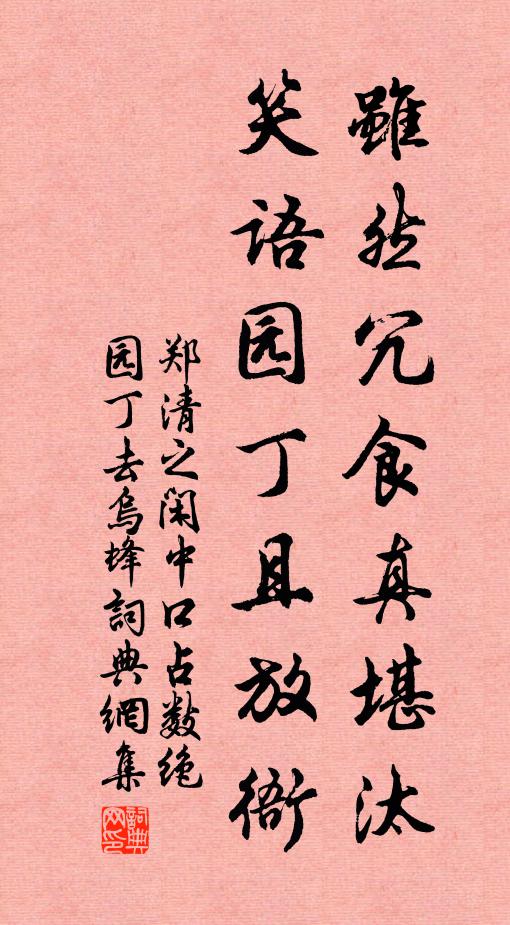 雖然冗食真堪汰
笑語园丁且放衙
郑清之闲中口占数绝
园丁去烏蜂詞典網集
詞典网印